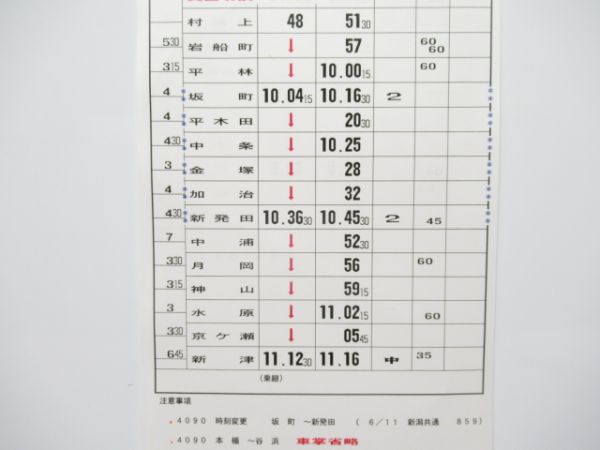 村上 48 51 30
530 岩船町 ↓ 57 60 60
315 平林 ↓ 10.00 15 60
4 坂町 10.04 15 10.16 30 2
4 平木田 ↓ 20 30
430 中条 ↓ 10.25
3 金塚 ↓ 28
4 加治 ↓ 32
430 新発田 10.36 30 10.45 30 2 45
7 中浦 ↓ 52 30
330 月岡 ↓ 56 60
315 神山 ↓ 59 15
3 水原 ↓ 11.02 15 60
330 京ケ瀬 ↓ 05 45
645 新津 11.12 30 11.16 中 35
(乗継)
注意事項
．4090 時刻変更 坂町 ～新発田 ( 6/11 新潟共通 859)
．4090 本楯 ～谷浜 車掌省略